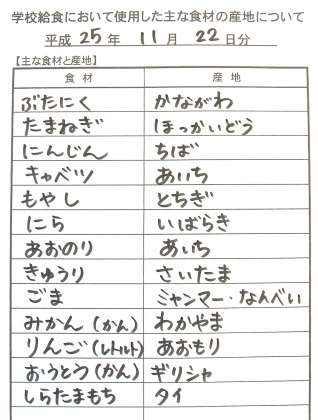 学校給食において使用した主な食材の産地について
平成 25 年 11 月 22 日分
【主な食材と産地】
食 材 産 地
ぶたにく かながわ
たまねぎ ほっかいどう
にんじん ちば
キャベツ あいち
もやし とちぎ
にら いばらき
あおのり あいち
きゅうり さいたま
ごま ミャンマー・なんべい
みかん(かん) わかやま
りんご(レトルト) あおもり
おうとう(かん) ギリシャ
しらたまもち タイ